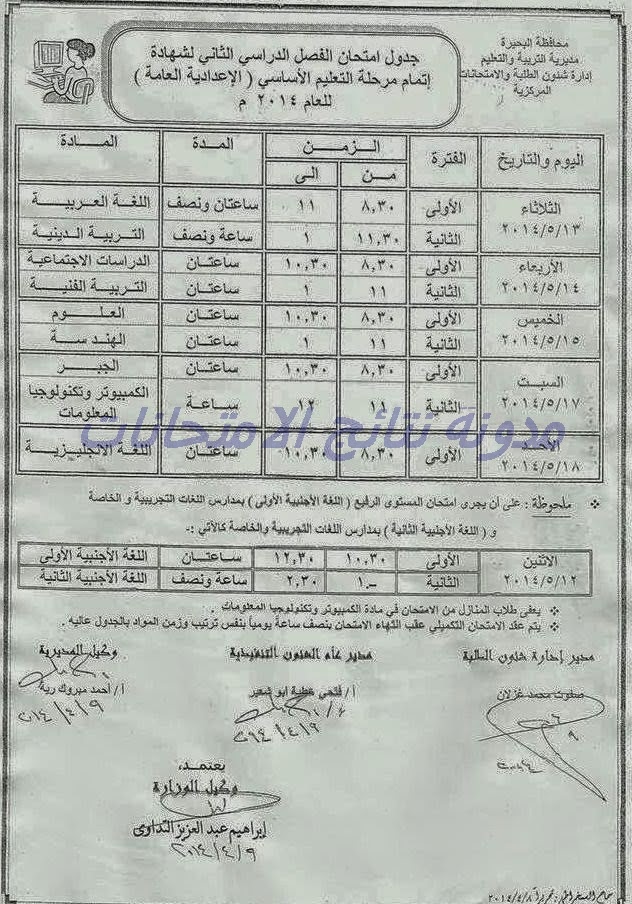 محافظة البحيرة
مديرية التربية والتعليم
إدارة شئون الطلبة والامتحانات
المركزية
جدول امتحان الفصل الدراسي الثاني لشهادة
إتمام مرحلة التعليم الأساسي ( الإعدادية العامة )
للعام ٢٠١٤ م
اليوم والتاريخ الفترة الزمن المدة المادة
من الى
الثلاثاء ٢٠١٤/٥/١٣ الأولى ٨,٣٠ ١١ ساعتان ونصف اللغة العربية
الثانية ١١,٣٠ ١ ساعة ونصف التربية الدينية
الأربعاء ٢٠١٤/٥/١٤ الأولى ٨,٣٠ ١٠,٣٠ ساعتان الدراسات الاجتماعية
الثانية ١١ ١ ساعتان التربية الفنية
الخميس ٢٠١٤/٥/١٥ الأولى ٨,٣٠ ١٠,٣٠ ساعتان العلوم
الثانية ١١ ١ ساعتان الهندسة
السبت ٢٠١٤/٥/١٧ الأولى ٨,٣٠ ١٠,٣٠ ساعتان الجبر
الثانية ١١ ١٢ ساعة الكمبيوتر وتكنولوجيا المعلومات
مدونة نتائج الامتحانات
الأحد ٢٠١٤/٥/١٨ الأولى ٨,٣٠ ١٠,٣٠ ساعتان اللغة الانجليزية
ملحوظة : على أن يجرى امتحان المستوى الرفيع ( اللغة الأجنبية الأولى ) بمدارس اللغات التجريبية و الخاصة
و ( اللغة الأجنبية الثانية ) بمدارس اللغات التجريبية والخاصة كالآتي :-
الاثنين ٢٠١٤/٥/١٢ الأولى ١٠,٣٠ ١٢,٣٠ ساعتان اللغة الأجنبية الأولى
الثانية ١,- ٢,٣٠ ساعة ونصف اللغة الأجنبية الثانية
يعفى طلاب المنازل من الامتحان في مادة الكمبيوتر وتكنولوجيا المعلومات .
يتم عقد الامتحان التكميلي عقب انتهاء الامتحان بنصف ساعة يومياً بنفس ترتيب وزمن المواد بالجدول عاليه .
مدير إدارة شئون الطلبة مدير عام الشئون التنفيذية وكيل المديرية
صفوت محمد غزلان أ/ فتحي عطية ابو شعير أ/ أحمد مبروك رية
٢٠١٤/٤/٩ ٢٠١٤/٤/٩
يعتمد،
وكيل الوزارة
إبراهيم عبد العزيز التداوى
٢٠١٤/٤/٩
٢٠١٤/٤/٨